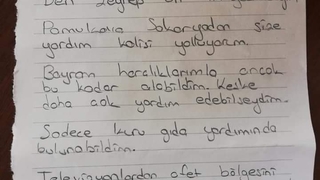 Ben Zeynep
Pamukova Sakaryadan size
yardım kolisi yolluyorum.
Bayram harçlıklarımla ancak
bu kadar alabildim. Keşke
daha çok yardım edebilseydim.
Sadece kuru gıda yardımında
bulunabildim.
Televizyonlardan afet bölgesini